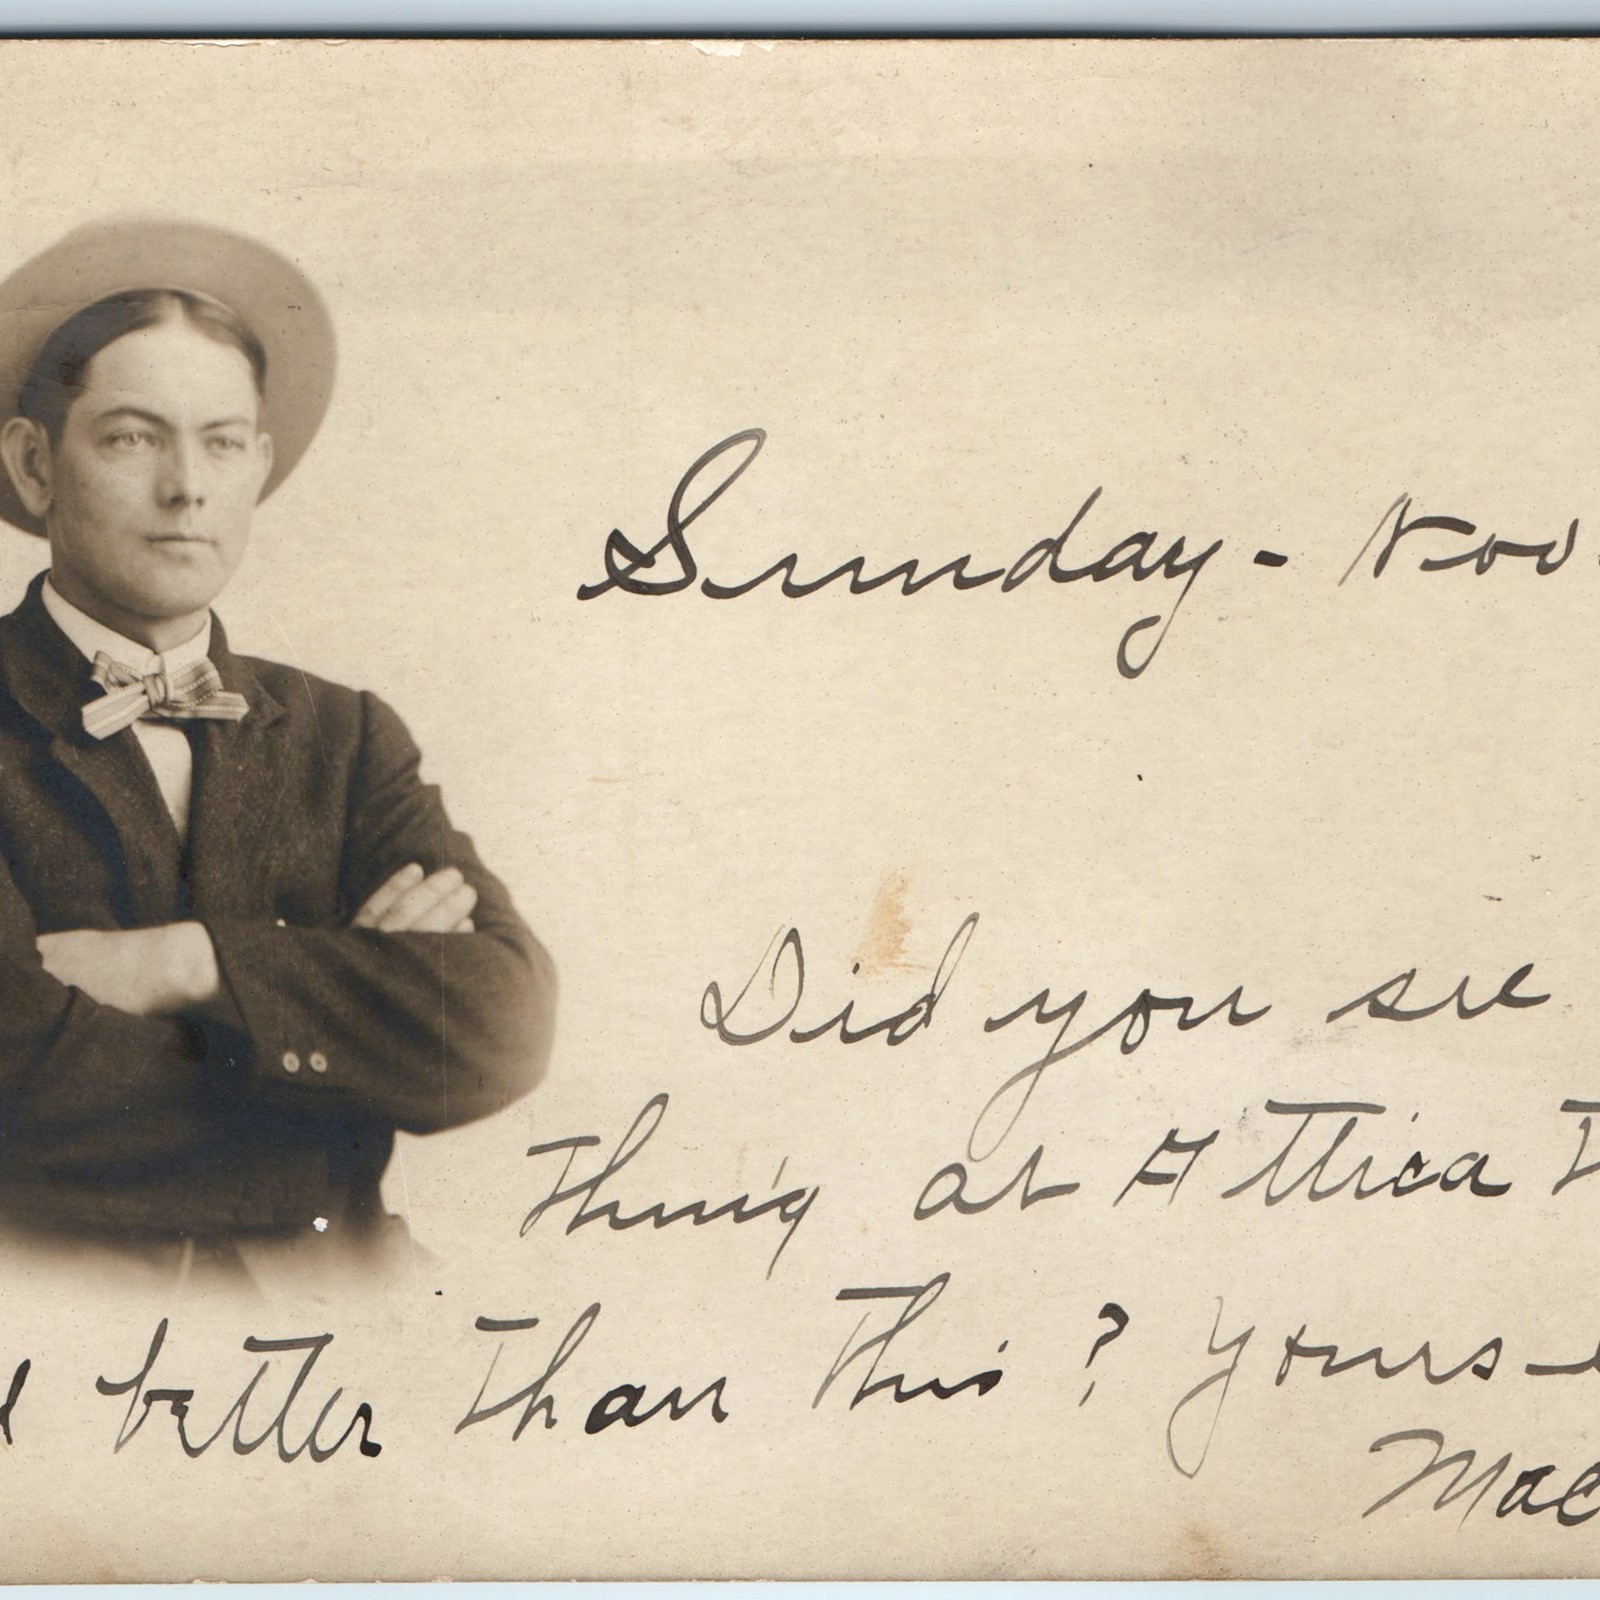 Sunday - Nov.
Did you see
thing at Attica
better than this? Yours
Mac